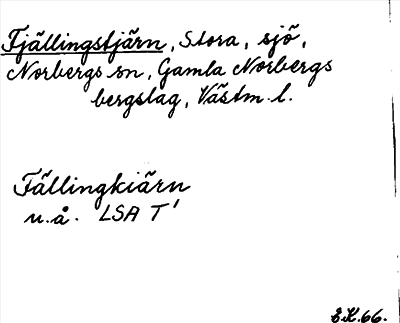 Fjällingstjärn, Stora, sjö,
Norbergs sn, Gamla Norbergs
bergslag, Västm. l.
Fällingkiärn
u.å. LSA T'
E.K.66.